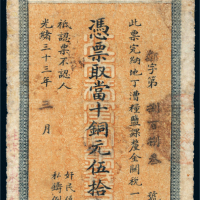 字第 捌百捌叁 號
此票完納地丁漕糧鹽課釐金關稅一
憑票取當十銅元伍拾
祗認票不認人
光緒三十三年 三月
奸民
私鑄